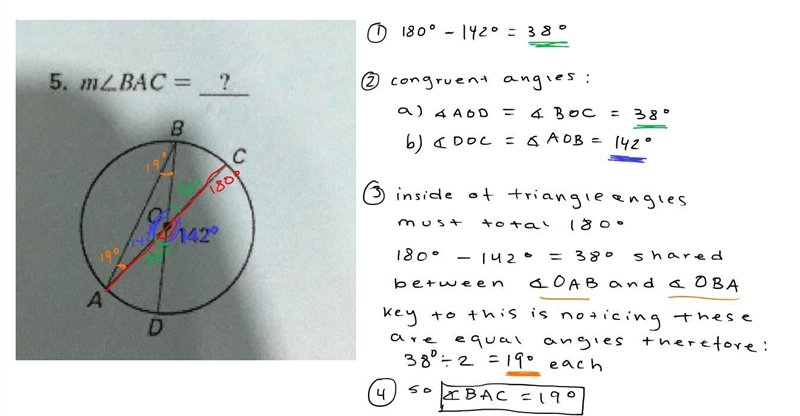 5. m∠BAC = ?
B
C
19°
38°
180°
O
142°
142°
19°
38°
A
D
① 180° - 142° = 38°
② congruent angles:
a) ∡AOD = ∡BOC = 38°
b) ∡DOC = ∡AOB = 142°
③ inside of triangle angles
must total 180°
180° - 142° = 38° shared
between ∡OAB and ∡OBA
key to this is noticing these
are equal angles therefore:
38° ÷ 2 = 19° each
④ so ∡BAC = 19°